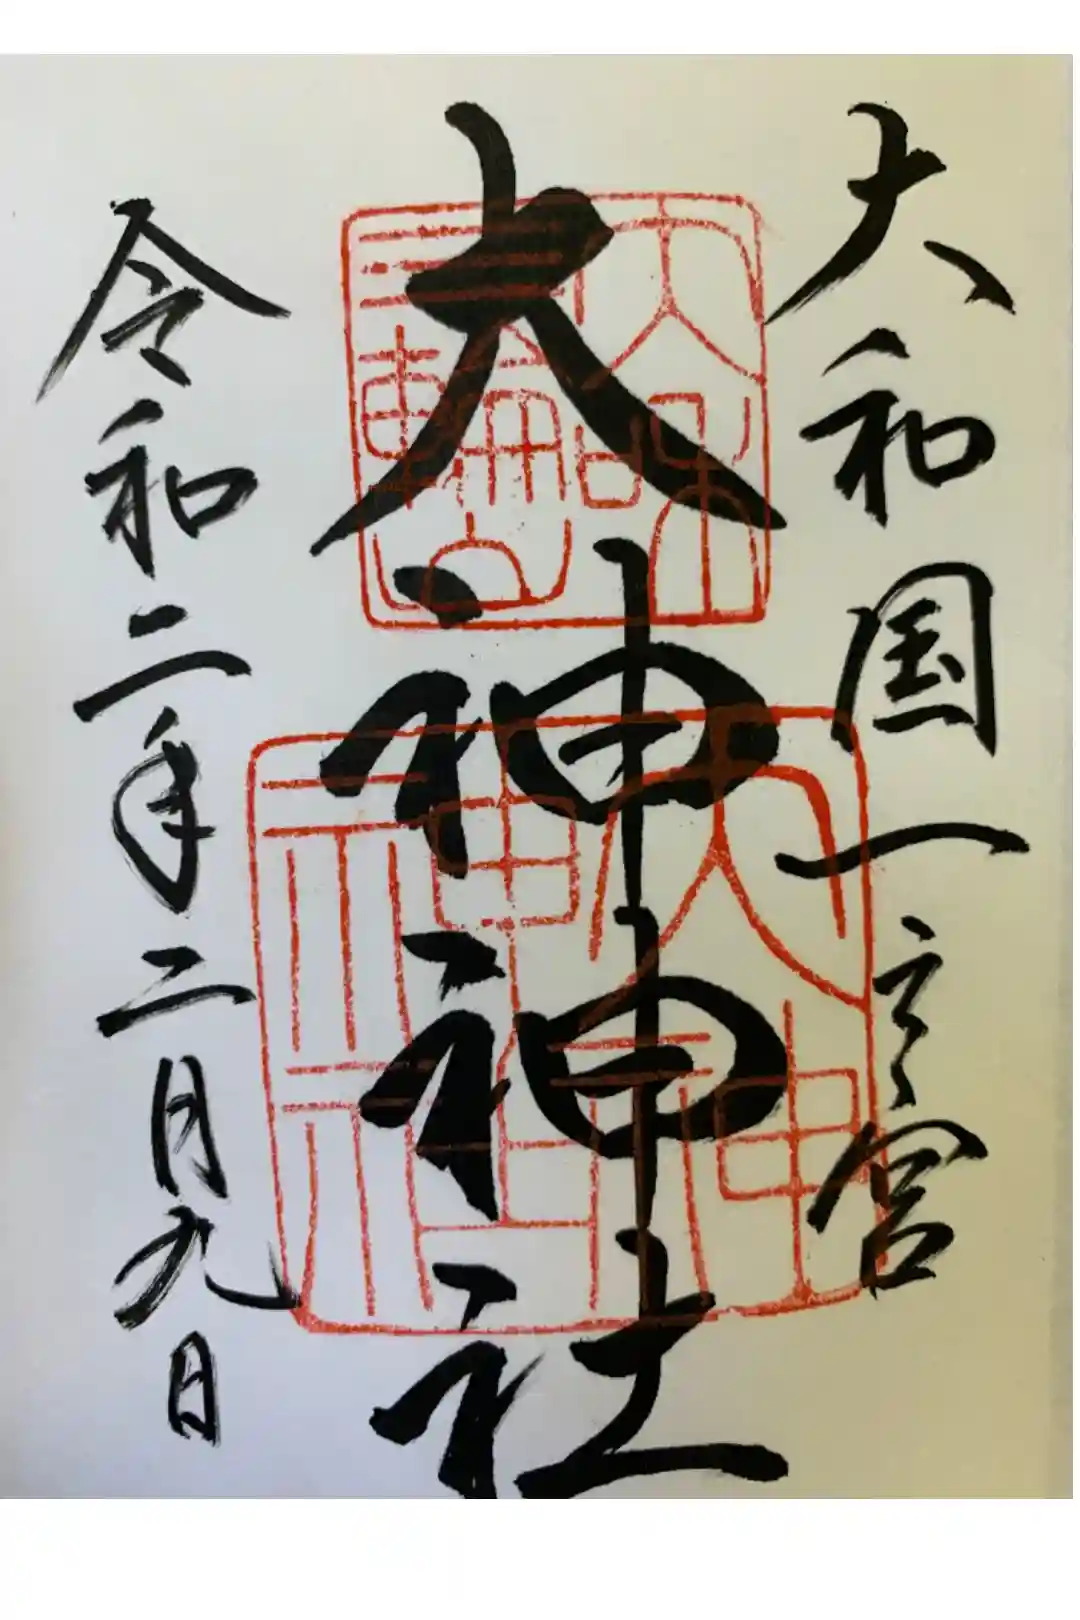 大和国一之宮
大神神社
令和二年二月九日